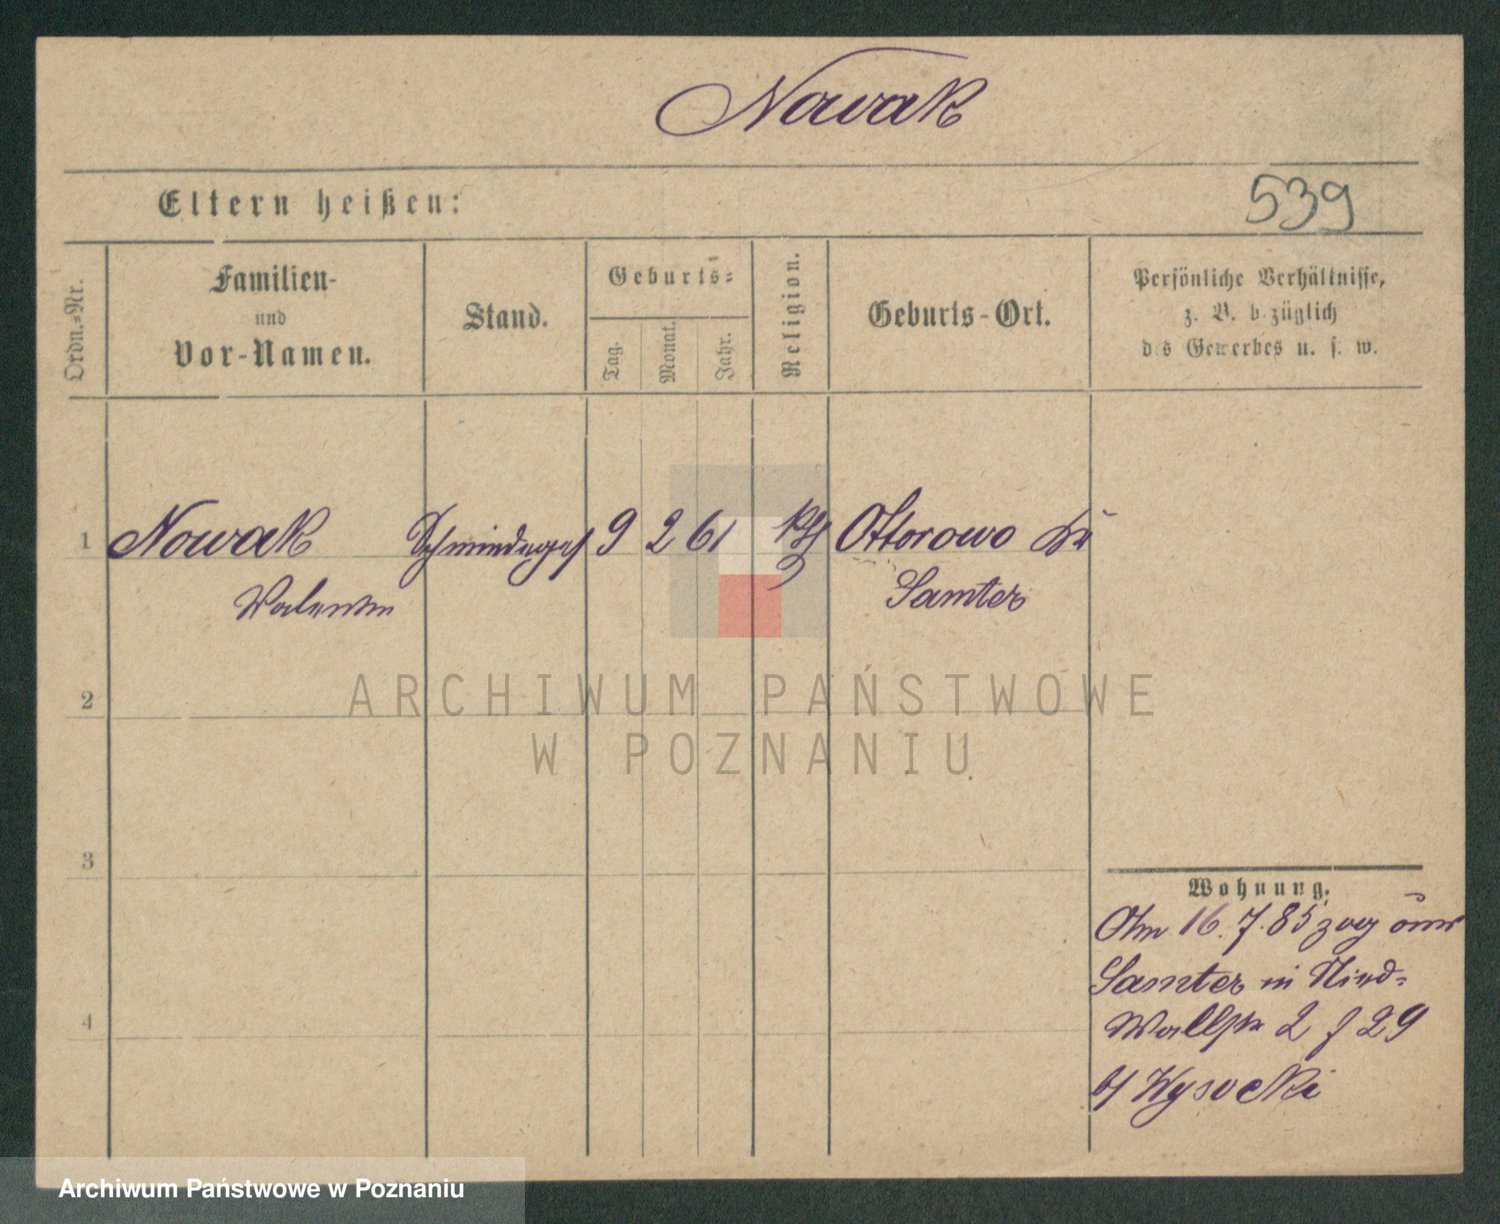 Nowak
Eltern heißen:
539
Ordn.-Nr.
Familien-
und
Vor-Namen.
Stand.
Geburts-
Tag.
Monat.
Jahr.
Religion.
Geburts-Ort.
Persönliche Verhältnisse,
z. B. bezüglich
des Gewerbes u. s. w.
1 Nowak Schmiedeges 9 2 61 kth Ottorowo Kr
Valentin Samter
ARCHIWUM PAŃSTWOWE
W POZNANIU
2
3
4
Wohnung.
16.7.85 zog
Samter in
Wallstr 2 f 29
b/ Wysocki
Archiwum Państwowe w Poznaniu